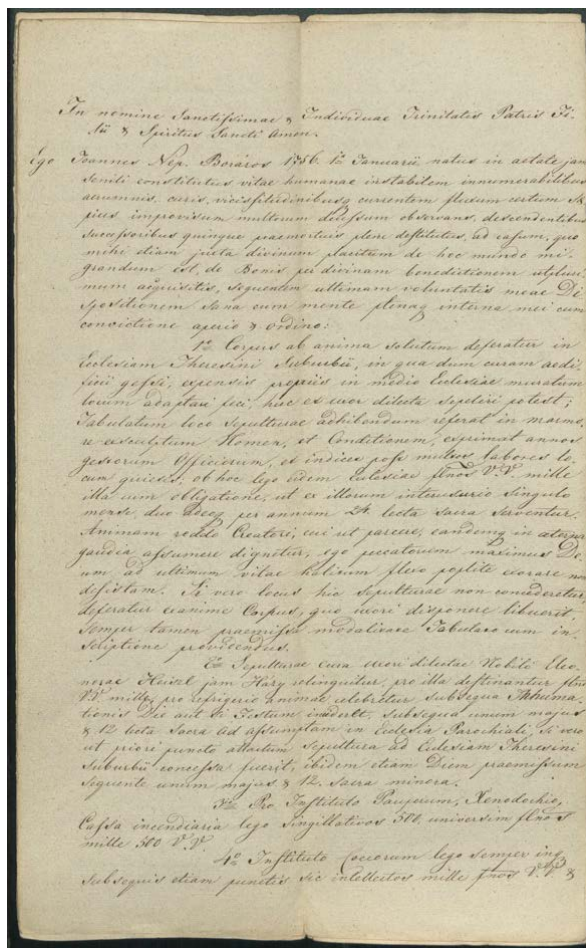 In nomine Sanctissimae & Individuae Trinitatis Patris Fi-
lii & Spiritus Sancti Amen.
Ego Joannes Nep. Boráros 1756. 1a Januarii natus in aetate jam
senili constitutus vitae humanae instabilem innumerabilibus
aerumnis, curis, vicissitudinibusq currentem fluxum certum Sae
pius improvisum multorum decessum observans, descendentibus
successoribus quinque praemortuis plene destitutus, ad casum, quo
mihi etiam juxta divinum placitum de hoc mundo mi-
grandum est, de Bonis per divinam benedictionem utpluri-
mum acquisitis, sequentem ultimam voluntatis meae Di
spositionem sana cum mente plenaq interna mei cum
convictione aperio & ordino:
1o Corpus ab anima solutum deferatur in
Ecclesiam Theresini Suburbii, in qua dum curam aedi-
ficii gessi, expensis propriis in medio Ecclesiae muratum
locum adaptari feci, huc ex uxor dilecta sepeliri potest;
Tabulatum loco sepulturae adhibendum referat in marmo,
re exsculptum Nomen, et Conditionem, exprimat annos
gestorum Officiorum, et indicet post multos labores lo-
cum quietis, ob hoc lego eidem Ecclesiae flnos V.V. mille
illa cum obligatione, ut ex illorum interusurio singulo
mense duo adeoq per annum 24 lecta sacra serventur.
Animam reddo Creatori, cui ut parcere, eandemq in aeterna
gaudia assumere dignetur, ego peccatorum maximus De-
um ad ultimum vitae halitum flexo poplite exorare non
desistam. Si vero locus hic sepulturae non concederetur
deferatur exanime Corpus, quo uxori disponere libuerit
semper tamen praemissa modalitate Tabulato cum in-
scriptione providendus.
2o Sepulturae cura uxori dilectae Nobili Eleo-
norae Heiszl jam Háry relinquitur, pro illa destinantur flni
V.V. mille, pro refrigerio animae celebretur subsequa Inhuma-
tionis Die aut si Festum inciderit, subsequa unum majus
& 12 lecta Sacra ad assumptam in Ecclesia Parochiali, si vero
ut priori puncto attactum sepultura ad Ecclesiam Theresini
Suburbii concessa fuerit, ibidem etiam Diem praemissum
sequente unum majus & 12. sacra minora.
3o Pro Instituto Pauperum, Xenodochio,
Cassa incendiaria lego singillativos 500, universim flnos
mille 500 V.V.
4o Instituto Coecorum lego semper inq
subsequis etiam punctis sic intellectos mille flnos V.V. &